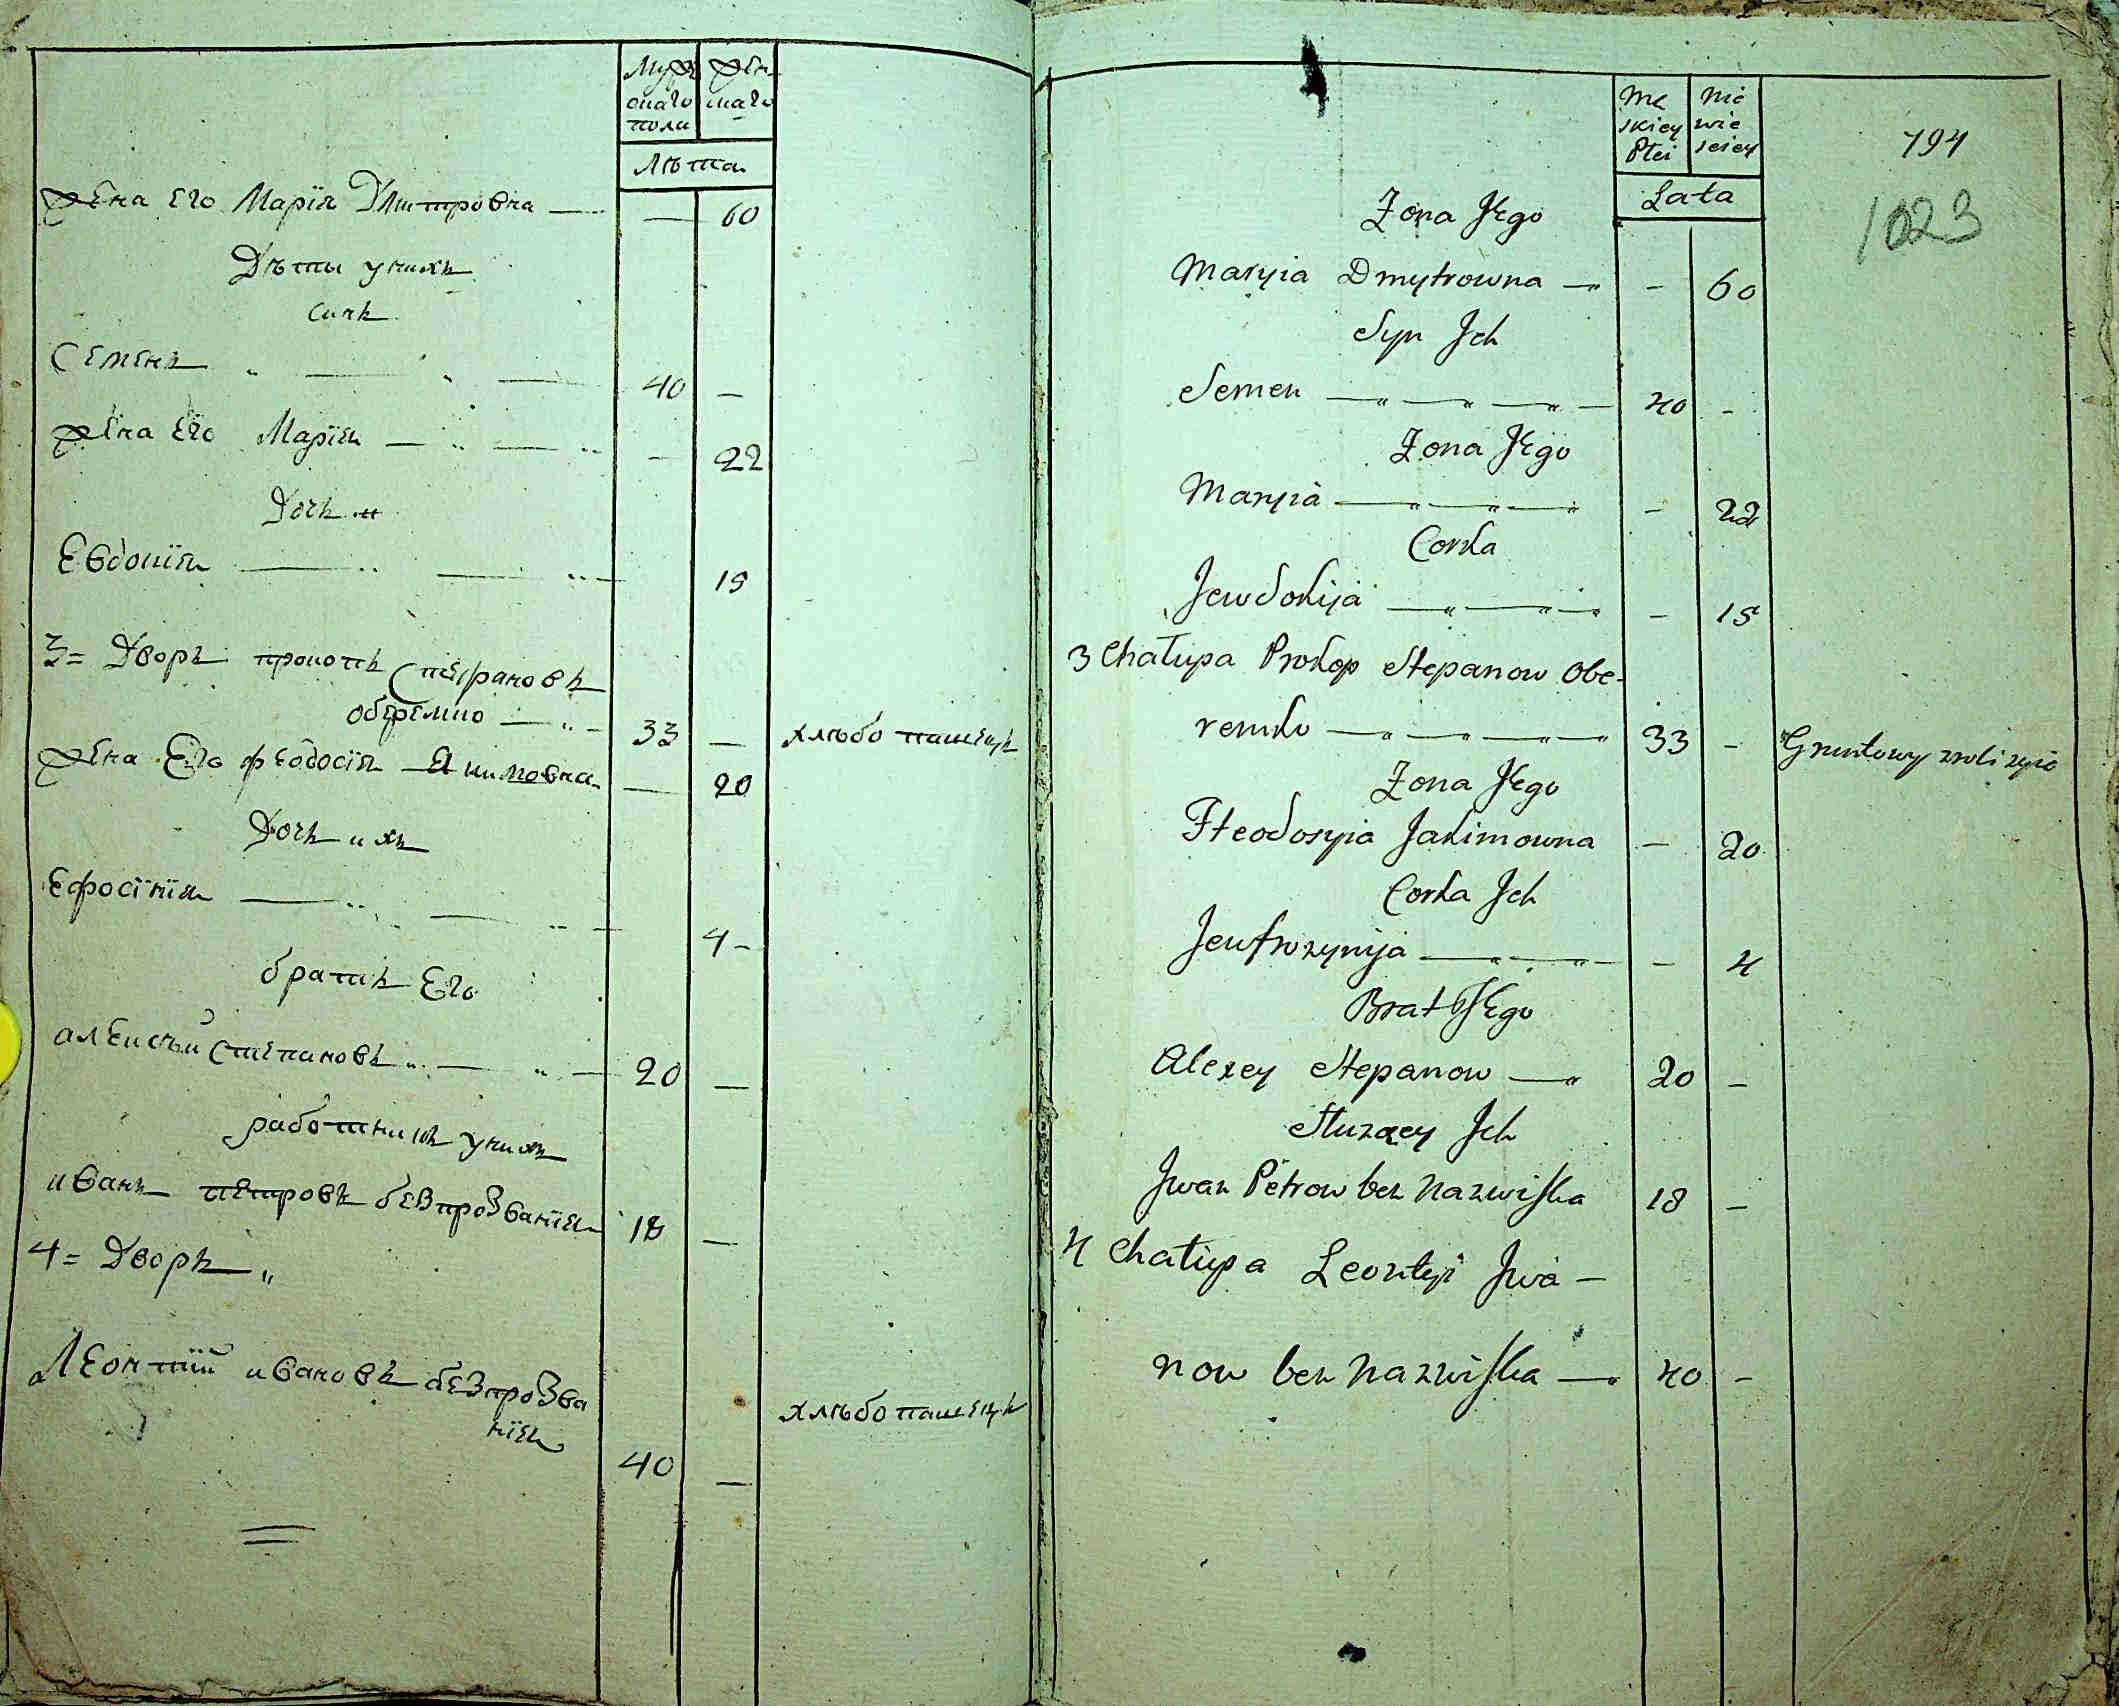 Муже жен
скаго скаго
полу
Лѣта
жена Его Марїя Дмитровна — — 60
Дѣты унихъ
синъ
Семенъ „ — „ — 40 —
жена Его Марїя — „ — „ — 22
Дочь их
Евдокїя — „ — „ — 15
3= Дворъ прокопъ Степановъ
оберемко — „ — 33 — хлѣбопашецъ
жена Его феодосїя Якимовна — 20
Дочь ихъ
Ефросїнїя — „ — „ — 4 -
братъ Его
алексѣй Степановъ „ — „ — 20 —
работникъ унихъ
иванъ петровъ безпрозванїя 18 —
4= Дворъ „
Леонтий ивановъ безпрозва
нїя 40 — хлѣбопашецъ
Mę Nie
skiey wie
Płci sciey
Lata
794
1023
Zona Jego
Maryia Dmytrowna — - 60
Syn Jch
Semen — „ — „ — „ — 40 -
Zona Jego
Maryia — „ — „ — „ - 22
Corka
Jewdokija — „ — „ - - 15
3 Chałupa Prokop Stepanow Obe-
remko — „ — „ — „ 33 - Gruntowy
Zona Jego
Fteodosyia Jakimowna - 20
Corka Jch
Jeufrozynija — „ — „ - - 4
Brat Jego
Alexey Stepanow — „ 20 -
Słuzący Jch
Jwan Petrow bez Nazwiska 18 -
4 Chałupa Leontyi Jwa —
now bez Nazwiska — „ 40 -